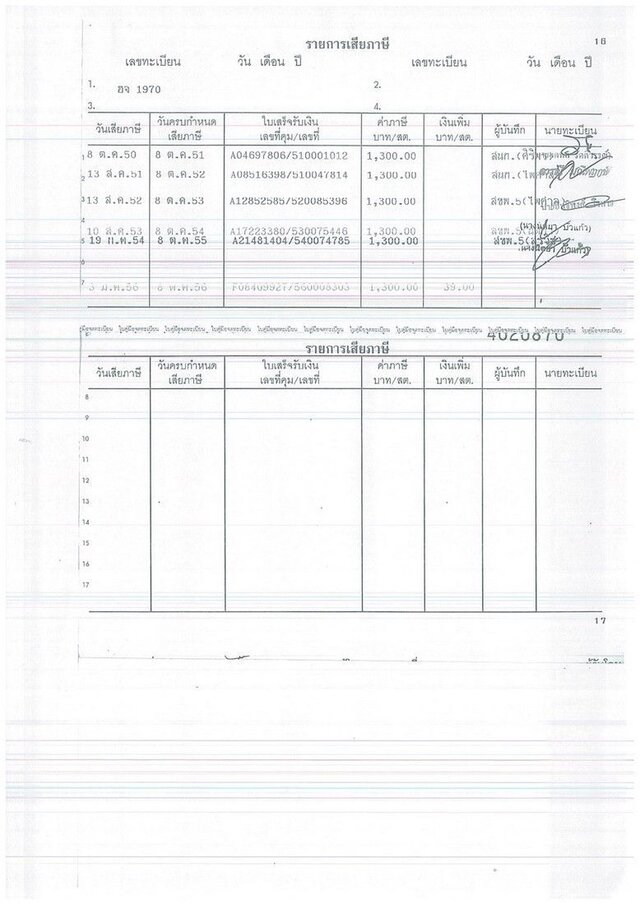 16
รายการเสียภาษี
เลขทะเบียน วัน เดือน ปี เลขทะเบียน วัน เดือน ปี
1. ฮจ 1970 2.
3. 4.
วันเสียภาษี วันครบกำหนดเสียภาษี ใบเสร็จรับเงิน เลขที่คุม/เลขที่ ค่าภาษี บาท/สต. เงินเพิ่ม บาท/สต. ผู้บันทึก นายทะเบียน
1 8 ต.ค.50 8 ต.ค.51 A04697806/510001012 1,300.00
2 13 ส.ค.51 8 ต.ค.52 A08516398/510047814 1,300.00
3 13 ส.ค.52 8 ต.ค.53 A12852585/520085396 1,300.00 สขพ.5(ไพศาล)
4 10 ส.ค.53 8 ต.ค.54 A17223380/530075446 1,300.00 สขพ.5
5 19 ก.ค.54 8 ต.ค.55 A21481404/540074785 1,300.00 สขพ.5
6
7 8 ต.ค.56 F08409927/560008303 1,300.00 39.00
ใบคู่มือจดทะเบียน ใบคู่มือจดทะเบียน ใบคู่มือจดทะเบียน ใบคู่มือจดทะเบียน
4020870
รายการเสียภาษี
วันเสียภาษี วันครบกำหนดเสียภาษี ใบเสร็จรับเงิน เลขที่คุม/เลขที่ ค่าภาษี บาท/สต. เงินเพิ่ม บาท/สต. ผู้บันทึก นายทะเบียน
8
9
10
11
12
13
14
15
16
17
17